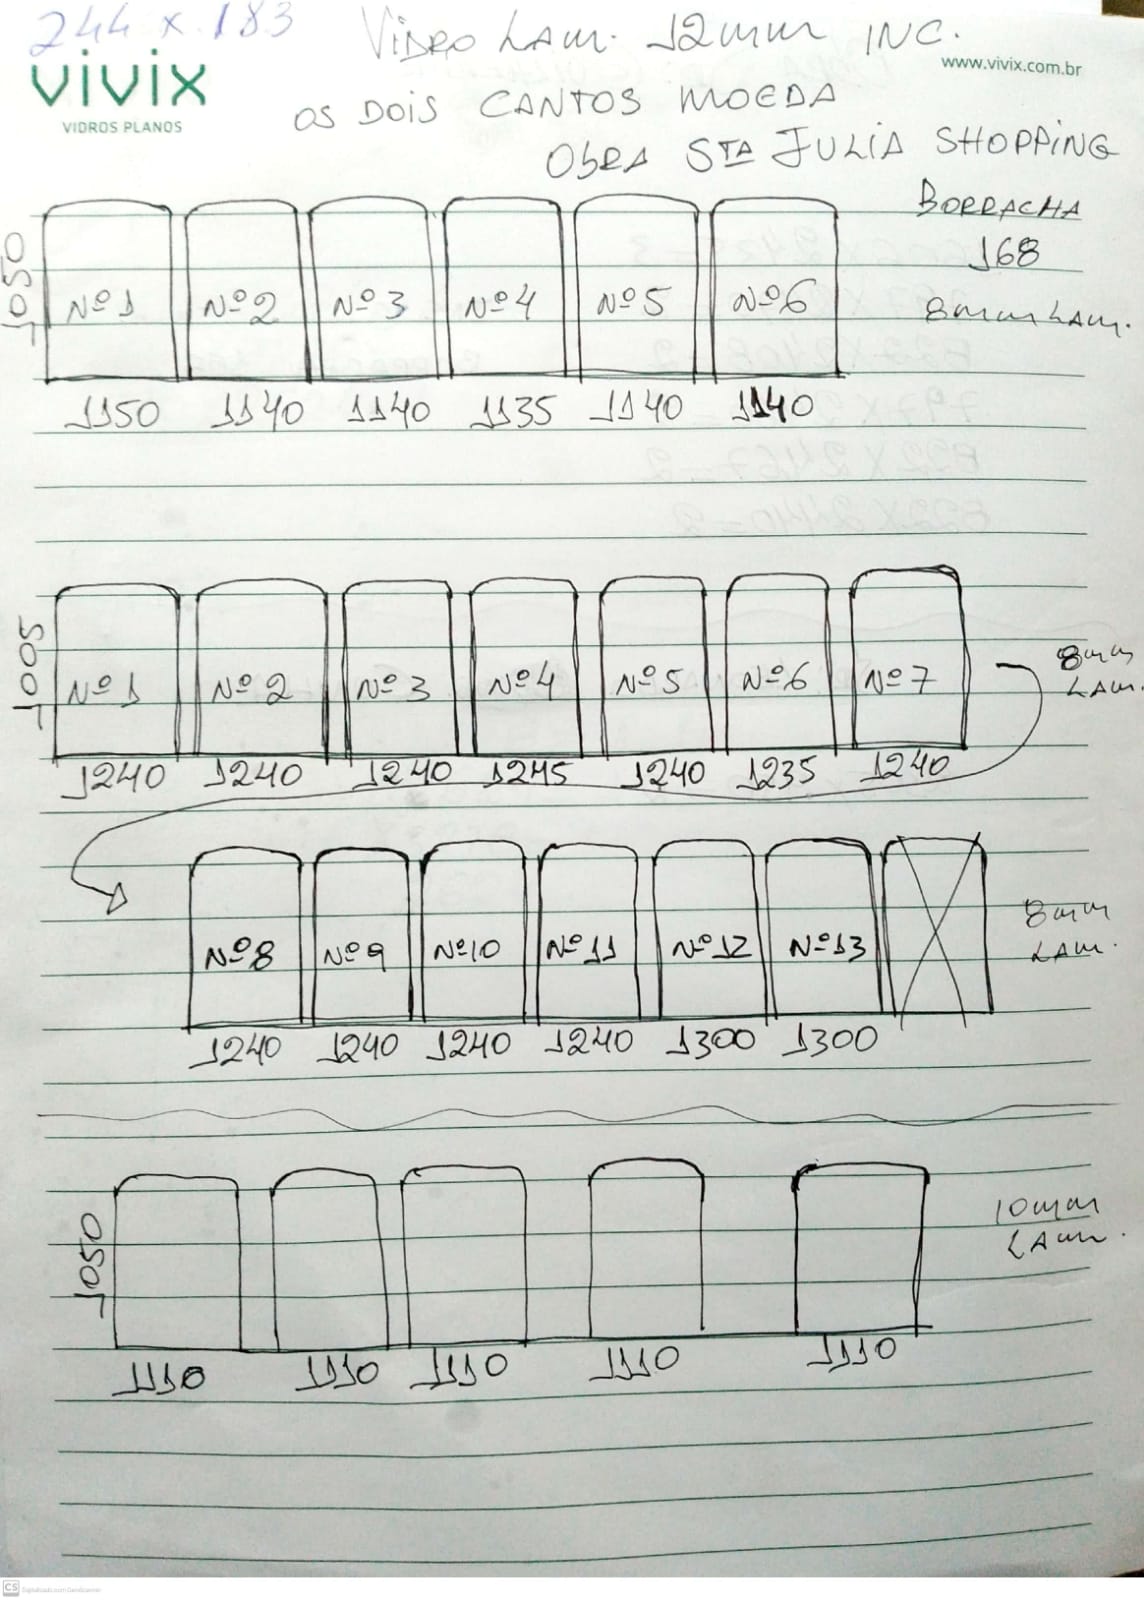 244 x 183
Vidro Lam. 12mm INC.
vivix
VIDROS PLANOS
www.vivix.com.br
OS DOIS CANTOS MOEDA
OBRA STA JULIA SHOPPING
BORRACHA
168
8mm LAM.
1050
Nº1 Nº2 Nº3 Nº4 Nº5 Nº6
1150 1140 1140 1135 1140 1140
1005
Nº1 Nº2 Nº3 Nº4 Nº5 Nº6 Nº7
8mm
LAM.
1240 1240 1240 1245 1240 1235 1240
Nº8 Nº9 Nº10 Nº11 Nº12 Nº13
8mm
LAM.
1240 1240 1240 1240 1300 1300
1050
10mm
LAM.
1110 1110 1110 1110 1110
CS Digitalizado com CamScanner